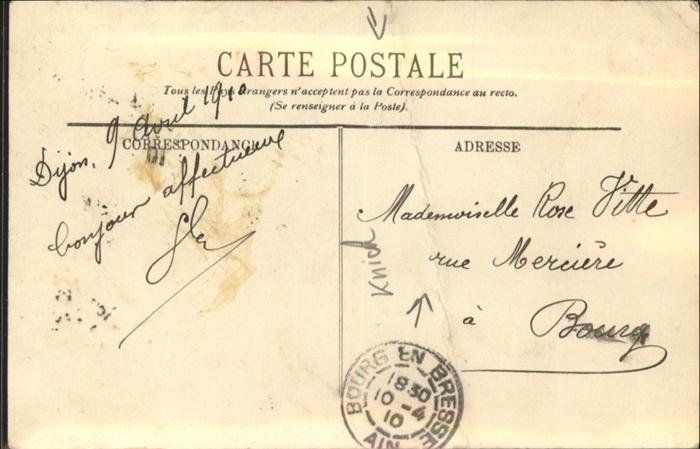 CARTE POSTALE
Tous les Pays étrangers n'acceptent pas la Correspondance au recto.
(Se renseigner à la Poste).
CORRESPONDANCE
Dijon, 9 avril 1910
bonjour affectueux
ADRESSE
Mademoiselle Rose Vitte
rue Mercière
à Bourg
Knick
BOURG EN BRESSE
1830
10-4
10
AIN